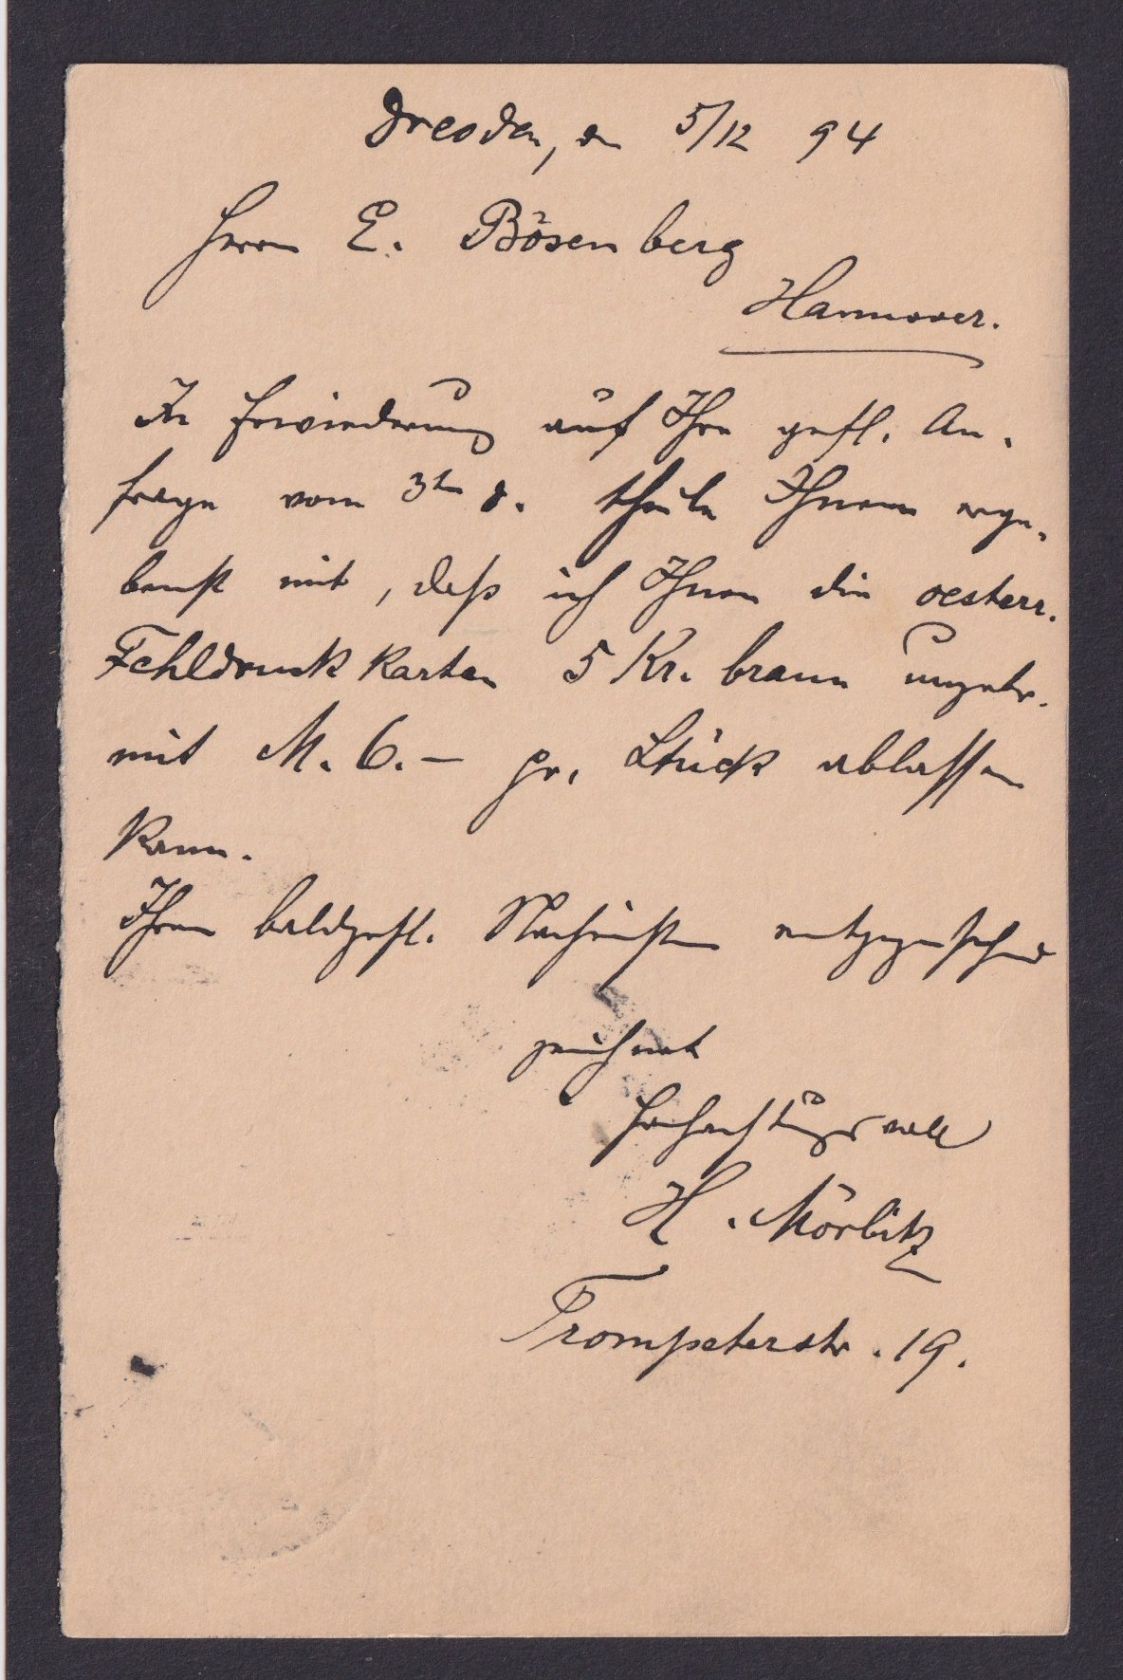 Dresden, den 5/12 94
Herrn E. Bösenberg
Hannover.
In Erwiederung auf Ihre gefl. An-
frage vom 3ten d. theile Ihnen erge-
benst mit, daß ich Ihnen die oesterr.
Fehldruck Karten 5 Kr. braun ungebr.
mit M. 6.– pr. Stück ablassen
kann.
Ihren baldgefl. Nachrichten entgegensehend
zeichnet
Hochachtungsvoll
H. Mörbitz
Trompeterstr. 19.